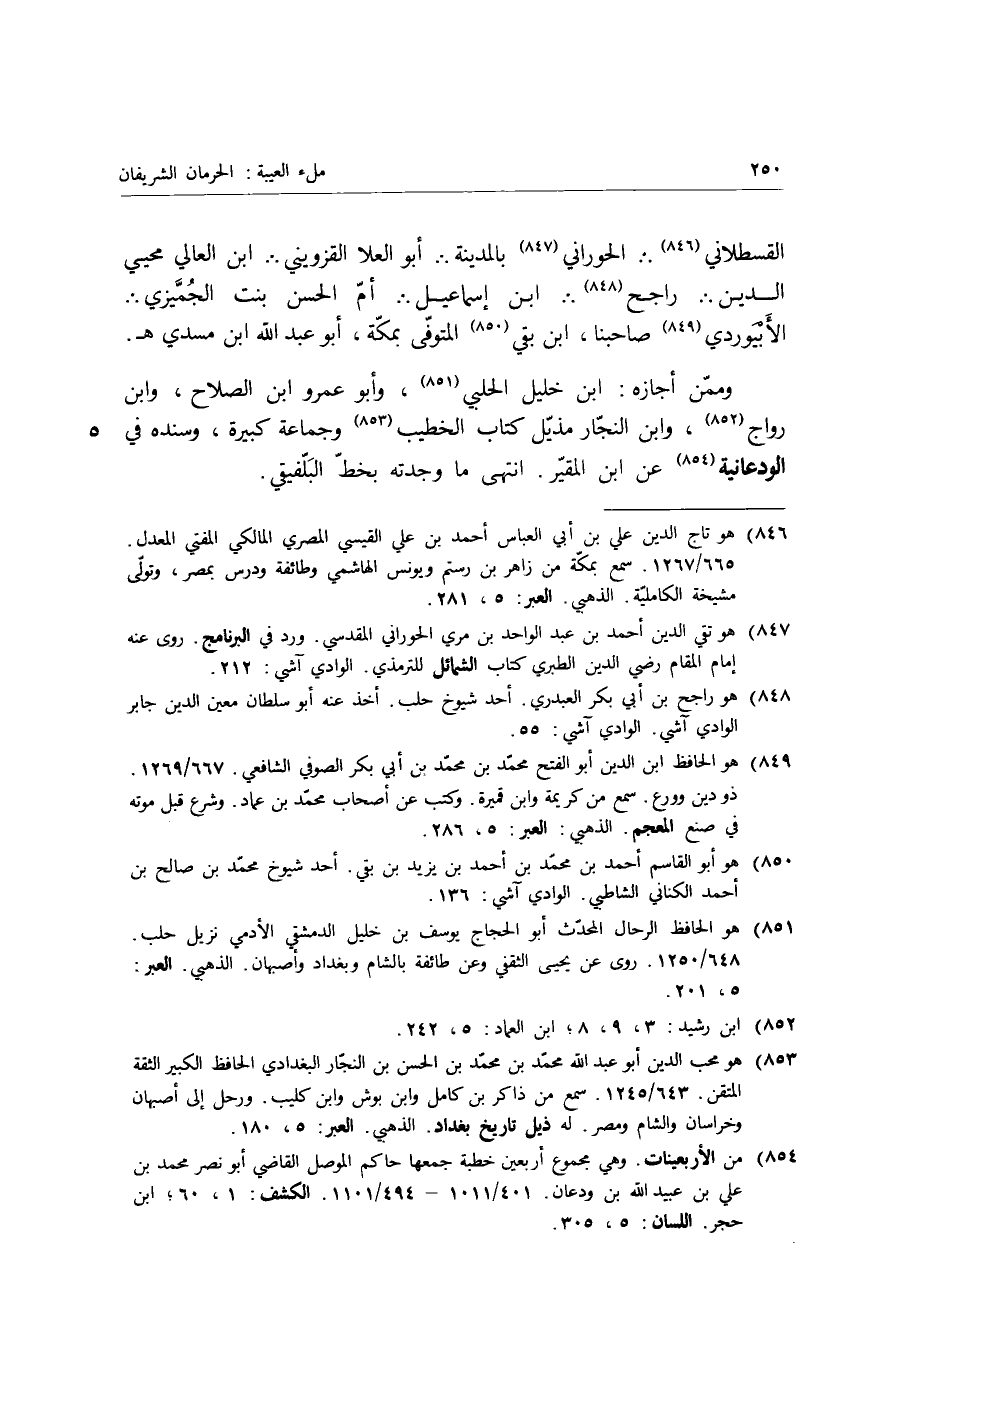 ٢٥٠ ملء العيبة : الحرمان الشريفان
القسطلاني(٨٤٦) ∴ الحوراني(٨٤٧) بالمدينة ∴ أبو العلا القزويني ∴ ابن العالي محيي
الـــديـن ∴ راجـح(٨٤٨) ∴ ابـن إسماعيـل ∴ أمّ الحسن بنت الجُمَّيزي ∴
الأَبِيْوردي(٨٤٩) صاحبنا ، ابن بقي(٨٥٠) المتوفّى بمكّة ، أبو عبد الله ابن مسدي هـ .
وممّن أجازه : ابن خليل الحلبي(٨٥١) ، وأبو عمرو ابن الصلاح ، وابن
رواج(٨٥٢) ، وابن النجّار مذيّل كتاب الخطيب(٨٥٣) وجماعة كبيرة ، وسنده في ٥
الودعانية(٨٥٤) عن ابن المقيّر . انتهى ما وجدته بخطّ البَلّفيقي .
٨٤٦) هو تاج الدين علي بن أبي العباس أحمد بن علي القيسي المصري المالكي المفتي المعدل .
١٢٦٧/٦٦٥ . سمع بمكّة من زاهر بن رستم ويونس الهاشمي وطائفة ودرس بمصر ، وتولّى
مشيخة الكامليّة . الذهبي . العبر : ٥ ، ٢٨١ .
٨٤٧) هو تقي الدين أحمد بن عبد الواحد بن مري الحوراني المقدسي . ورد في البرنامج . روى عنه
إمام المقام رضي الدين الطبري كتاب الشمائل للترمذي . الوادي آشي : ٢١٢ .
٨٤٨) هو راجح بن أبي بكر العبدري . أحد شيوخ حلب . أخذ عنه أبو سلطان معين الدين جابر
الوادي آشي . الوادي آشي : ٥٥ .
٨٤٩) هو الحافظ ابن الدين أبو الفتح محمّد بن محمّد بن أبي بكر الصوفي الشافعي . ١٢٦٩/٦٦٧ .
ذو دين وورع . سمع من كريمة وابن قميرة . وكتب عن أصحاب محمّد بن عماد . وشرع قبل موته
في صنع المعجم . الذهبي : العبر : ٥ ، ٢٨٦ .
٨٥٠) هو أبو القاسم أحمد بن محمّد بن أحمد بن يزيد بن بقي . أحد شيوخ محمّد بن صالح بن
أحمد الكناني الشاطبي . الوادي آشي : ١٣٦ .
٨٥١) هو الحافظ الرحال المحدّث أبو الحجاج يوسف بن خليل الدمشقي الأدمي نزيل حلب .
١٢٥٠/٦٤٨ . روى عن يحيى الثقفي وعن طائفة بالشام وبغداد وأصبهان . الذهبي . العبر :
٥ ، ٢٠١ .
٨٥٢) ابن رشيد : ٣ ، ٩ ، ٨ ؛ ابن العماد : ٥ ، ٢٤٢ .
٨٥٣) هو محب الدين أبو عبد الله محمّد بن محمّد بن الحسن بن النجّار البغدادي الحافظ الكبير الثقة
المتقن . ١٢٤٥/٦٤٣ . سمع من ذاكر بن كامل وابن بوش وابن كليب . ورحل إلى أصبهان
وخراسان والشام ومصر . له ذيل تاريخ بغداد . الذهبي . العبر : ٥ ، ١٨٠ .
٨٥٤) من الأربعينات . وهي مجموع أربعين خطبة جمعها حاكم الموصل القاضي أبو نصر محمد بن
علي بن عبيد الله بن ودعان . ١٠١١/٤٠١ - ١١٠١/٤٩٤ . الكشف : ١ ، ٦٠ ؛ ابن
حجر . اللسان : ٥ ، ٣٠٥ .